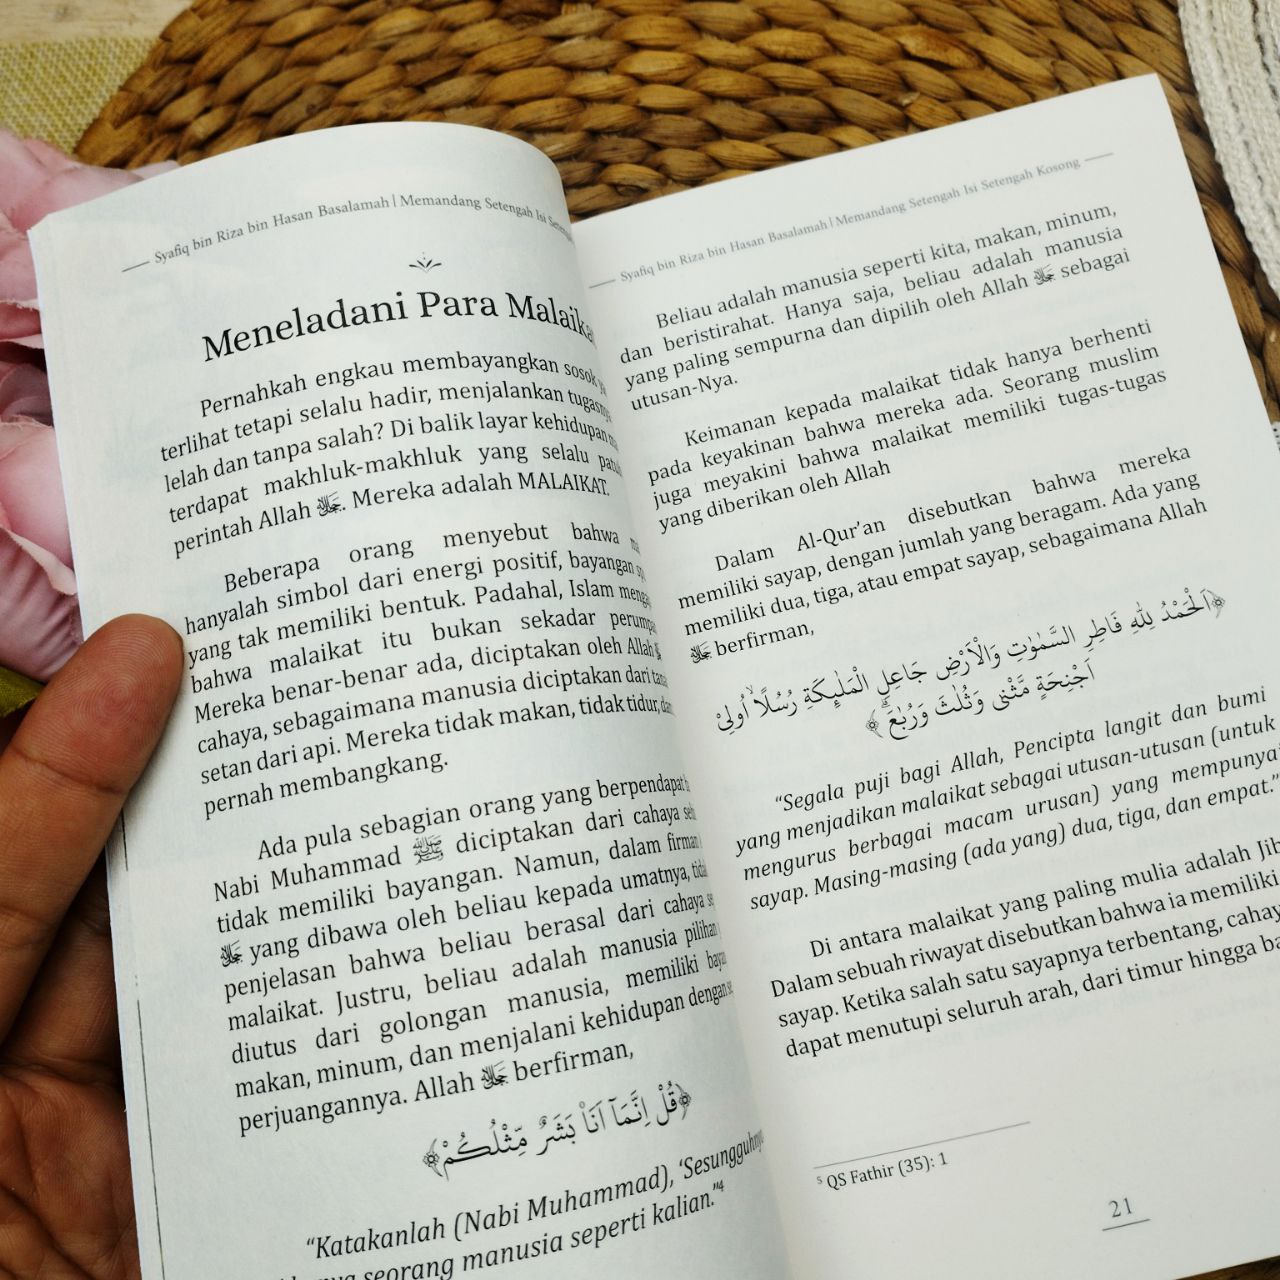 Syafiq bin Riza bin Hasan Basalamah | Memandang Setengah Isi
Meneladani Para
Pernahkah engkau membayangkan sosok
terlihat tetapi selalu hadir, menjalankan
lelah dan tanpa salah? Di balik layar kehidupan
terdapat makhluk-makhluk yang selalu
perintah Allah ﷻ. Mereka adalah MALAIKAT.
Beberapa orang menyebut bahwa
hanyalah simbol dari energi positif, bayangan
yang tak memiliki bentuk. Padahal, Islam
bahwa malaikat itu bukan sekadar
Mereka benar-benar ada, diciptakan oleh Allah
cahaya, sebagaimana manusia diciptakan dari
setan dari api. Mereka tidak makan, tidak tidur,
pernah membangkang.
Ada pula sebagian orang yang berpendapat
Nabi Muhammad ﷺ diciptakan dari cahaya
tidak memiliki bayangan. Namun, dalam firman
ﷻ yang dibawa oleh beliau kepada umatnya,
penjelasan bahwa beliau berasal dari cahaya
malaikat. Justru, beliau adalah manusia pilihan
diutus dari golongan manusia, memiliki
makan, minum, dan menjalani kehidupan dengan
perjuangannya. Allah ﷻ berfirman,
﴿قُلْ اِنَّمَآ اَنَا۠ بَشَرٌ مِّثْلُكُمْ﴾
“Katakanlah (Nabi Muhammad), ‘Sesungguhnya
seorang manusia seperti kalian.’”⁴
Syafiq bin Riza bin Hasan Basalamah | Memandang Setengah Isi Setengah Kosong
Beliau adalah manusia seperti kita, makan, minum,
dan beristirahat. Hanya saja, beliau adalah manusia
yang paling sempurna dan dipilih oleh Allah ﷻ sebagai
utusan-Nya.
Keimanan kepada malaikat tidak hanya berhenti
pada keyakinan bahwa mereka ada. Seorang muslim
juga meyakini bahwa malaikat memiliki tugas-tugas
yang diberikan oleh Allah
Dalam Al-Qur’an disebutkan bahwa mereka
memiliki sayap, dengan jumlah yang beragam. Ada yang
memiliki dua, tiga, atau empat sayap, sebagaimana Allah
ﷻ berfirman,
﴿اَلْحَمْدُ لِلّٰهِ فَاطِرِ السَّمٰوٰتِ وَالْاَرْضِ جَاعِلِ الْمَلٰۤىِٕكَةِ رُسُلًاۙ اُولِيْٓ
اَجْنِحَةٍ مَّثْنٰى وَثُلٰثَ وَرُبٰعَۗ﴾
“Segala puji bagi Allah, Pencipta langit dan bumi
yang menjadikan malaikat sebagai utusan-utusan (untuk
mengurus berbagai macam urusan) yang mempunyai
sayap. Masing-masing (ada yang) dua, tiga, dan empat.”
Di antara malaikat yang paling mulia adalah
Dalam sebuah riwayat disebutkan bahwa ia memiliki
sayap. Ketika salah satu sayapnya terbentang,
dapat menutupi seluruh arah, dari timur hingga
⁵ QS Fathir (35): 1
21